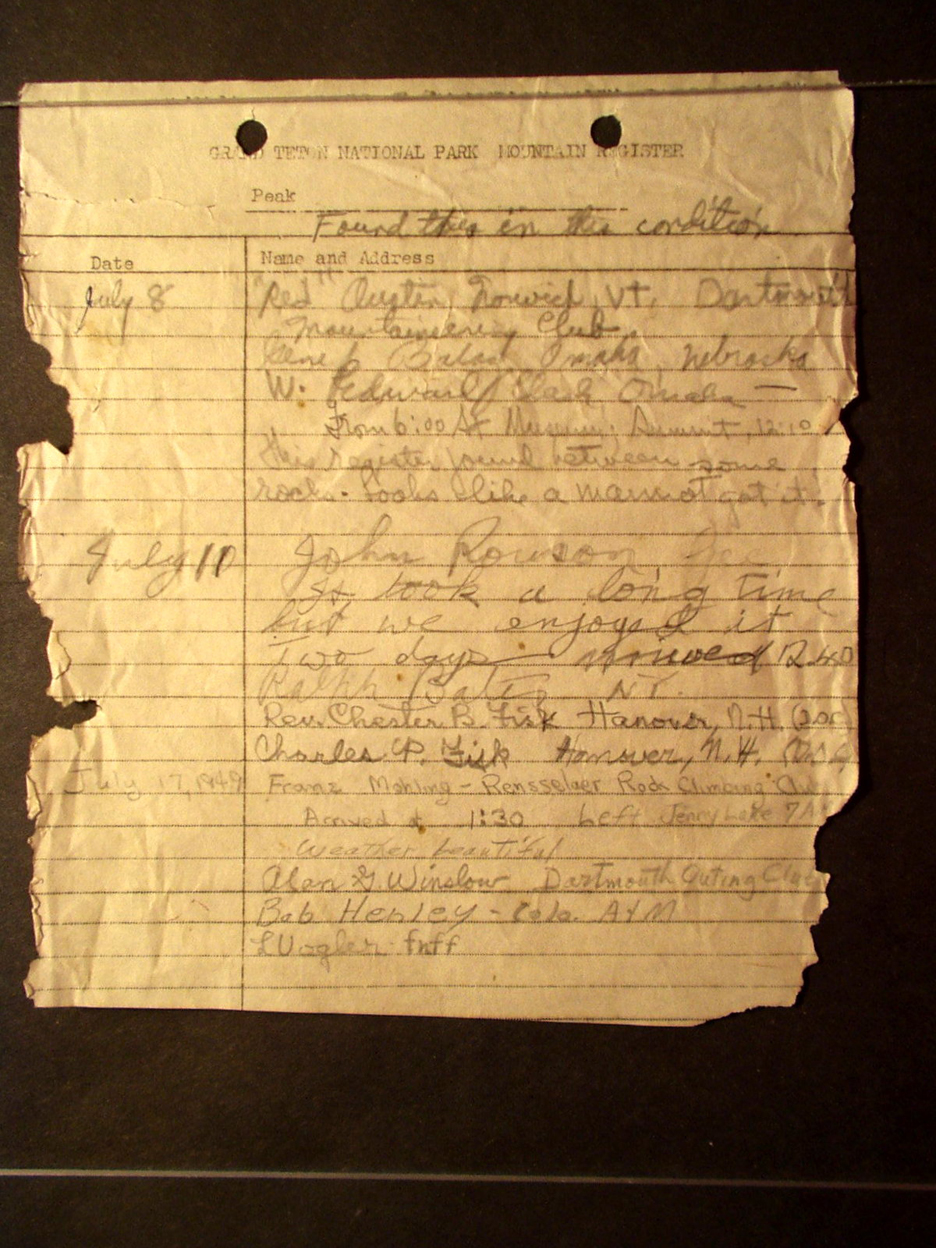 GRAND TETON NATIONAL PARK MOUNTAIN REGISTER
Peak
Found this in this condition
Date Name and Address
July 8 "Red" Austin, Norwich, Vt. Dartmouth
Mountaineering Club
Omaha, Nebraska
W. Edward Clark Omaha —
From 6:00 At Summit, 12:10
This register found between some
rocks. Looks like a marmot got it.
July 10 John Rowson
It took a long time
but we enjoyed it
Two days 12.40
Ralph Bates N.Y.
Rev. Chester B. Fisk Hanover, N.H.
Charles P. Fisk Hanover, N.H.
July 17, 1949 Franz Mohling - Rensselaer Rock Climbing Club
Arrived at 1:30 Left Jenny Lake 7A
Weather beautiful
Alan G. Winslow Dartmouth Outing Club
Bob Henley - Colo. A & M
L Vogler